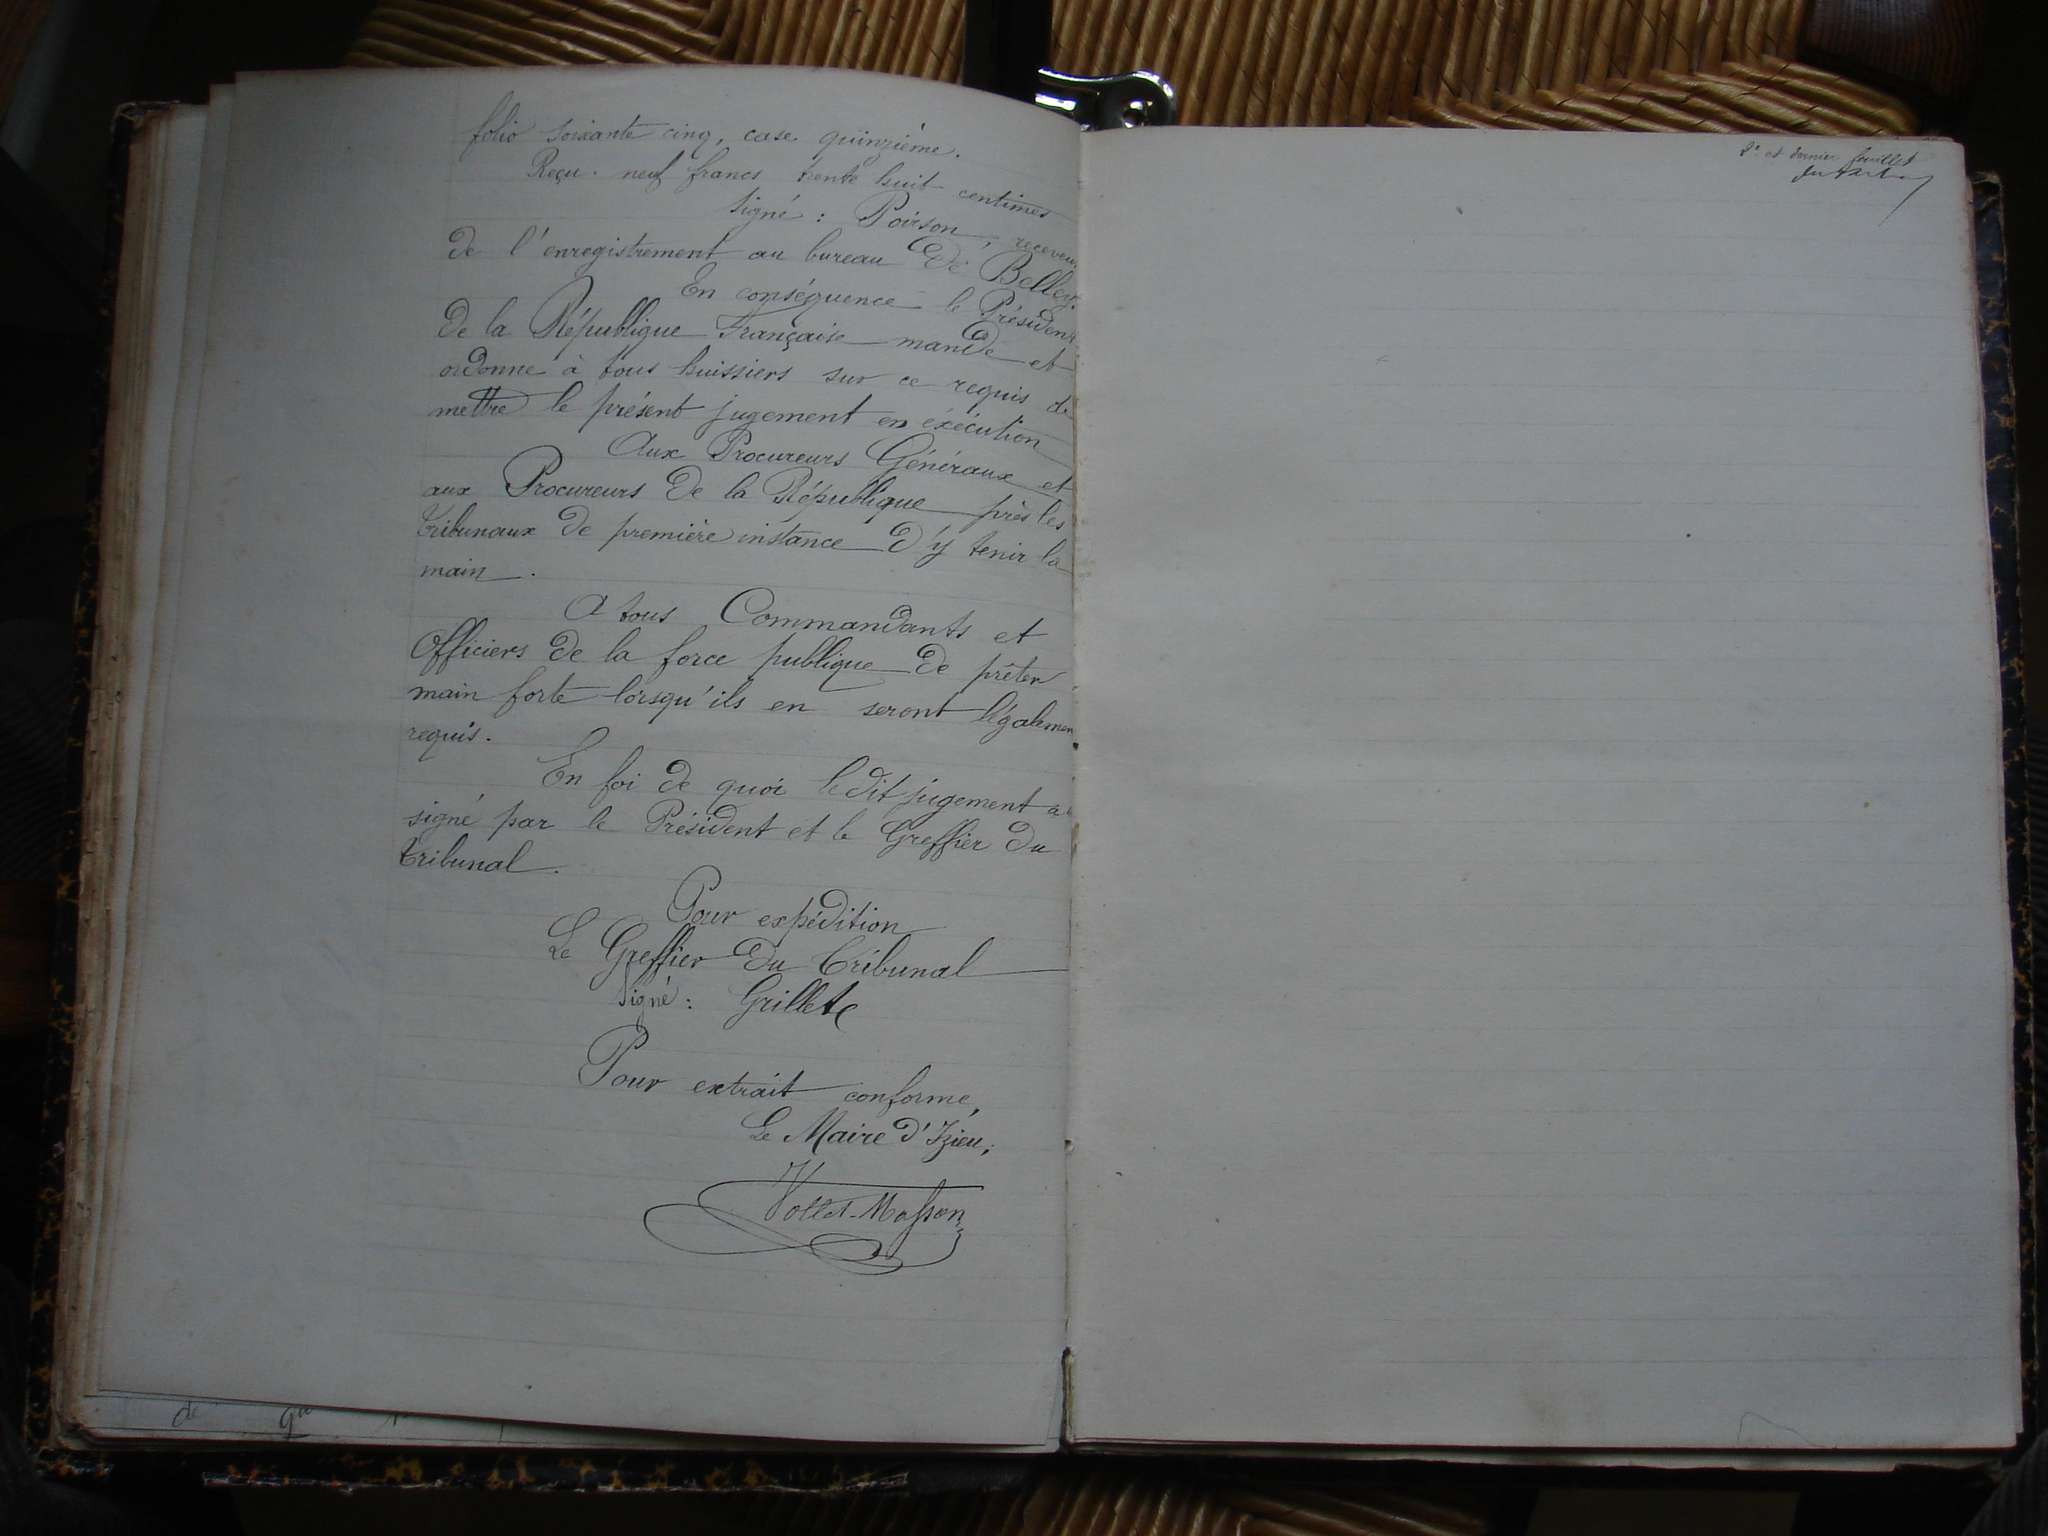 folio soixante cinq, case quinzième.
Reçu. neuf francs trente huit centimes
Signé : Poirson, receveur
de l'enregistrement au bureau de Belley.
En conséquence le Président
de la République Française mande et
ordonne à tous huissiers sur ce requis de
mettre le présent jugement en éxécution
Aux Procureurs Généraux et
aux Procureurs de la République près les
tribunaux de première instance d'y tenir la
main.
A tous Commandants et
Officiers de la force publique de prêter
main forte lorsqu'ils en seront légalemen
requis.
En foi de quoi ledit jugement a
signé par le Président et le Greffier du
tribunal.
Pour expédition
Le Greffier du Tribunal
Signé : Grillet
Pour extrait conforme,
Le Maire d'Izieu,
Vollet-Masson
et dernier feuillet
de qu